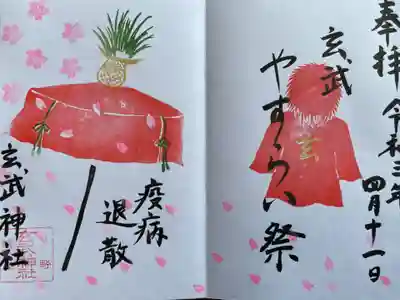 奉拝 令和三年 四月十一日
玄武
やすらい祭
玄
疫病
退散
玄武神社